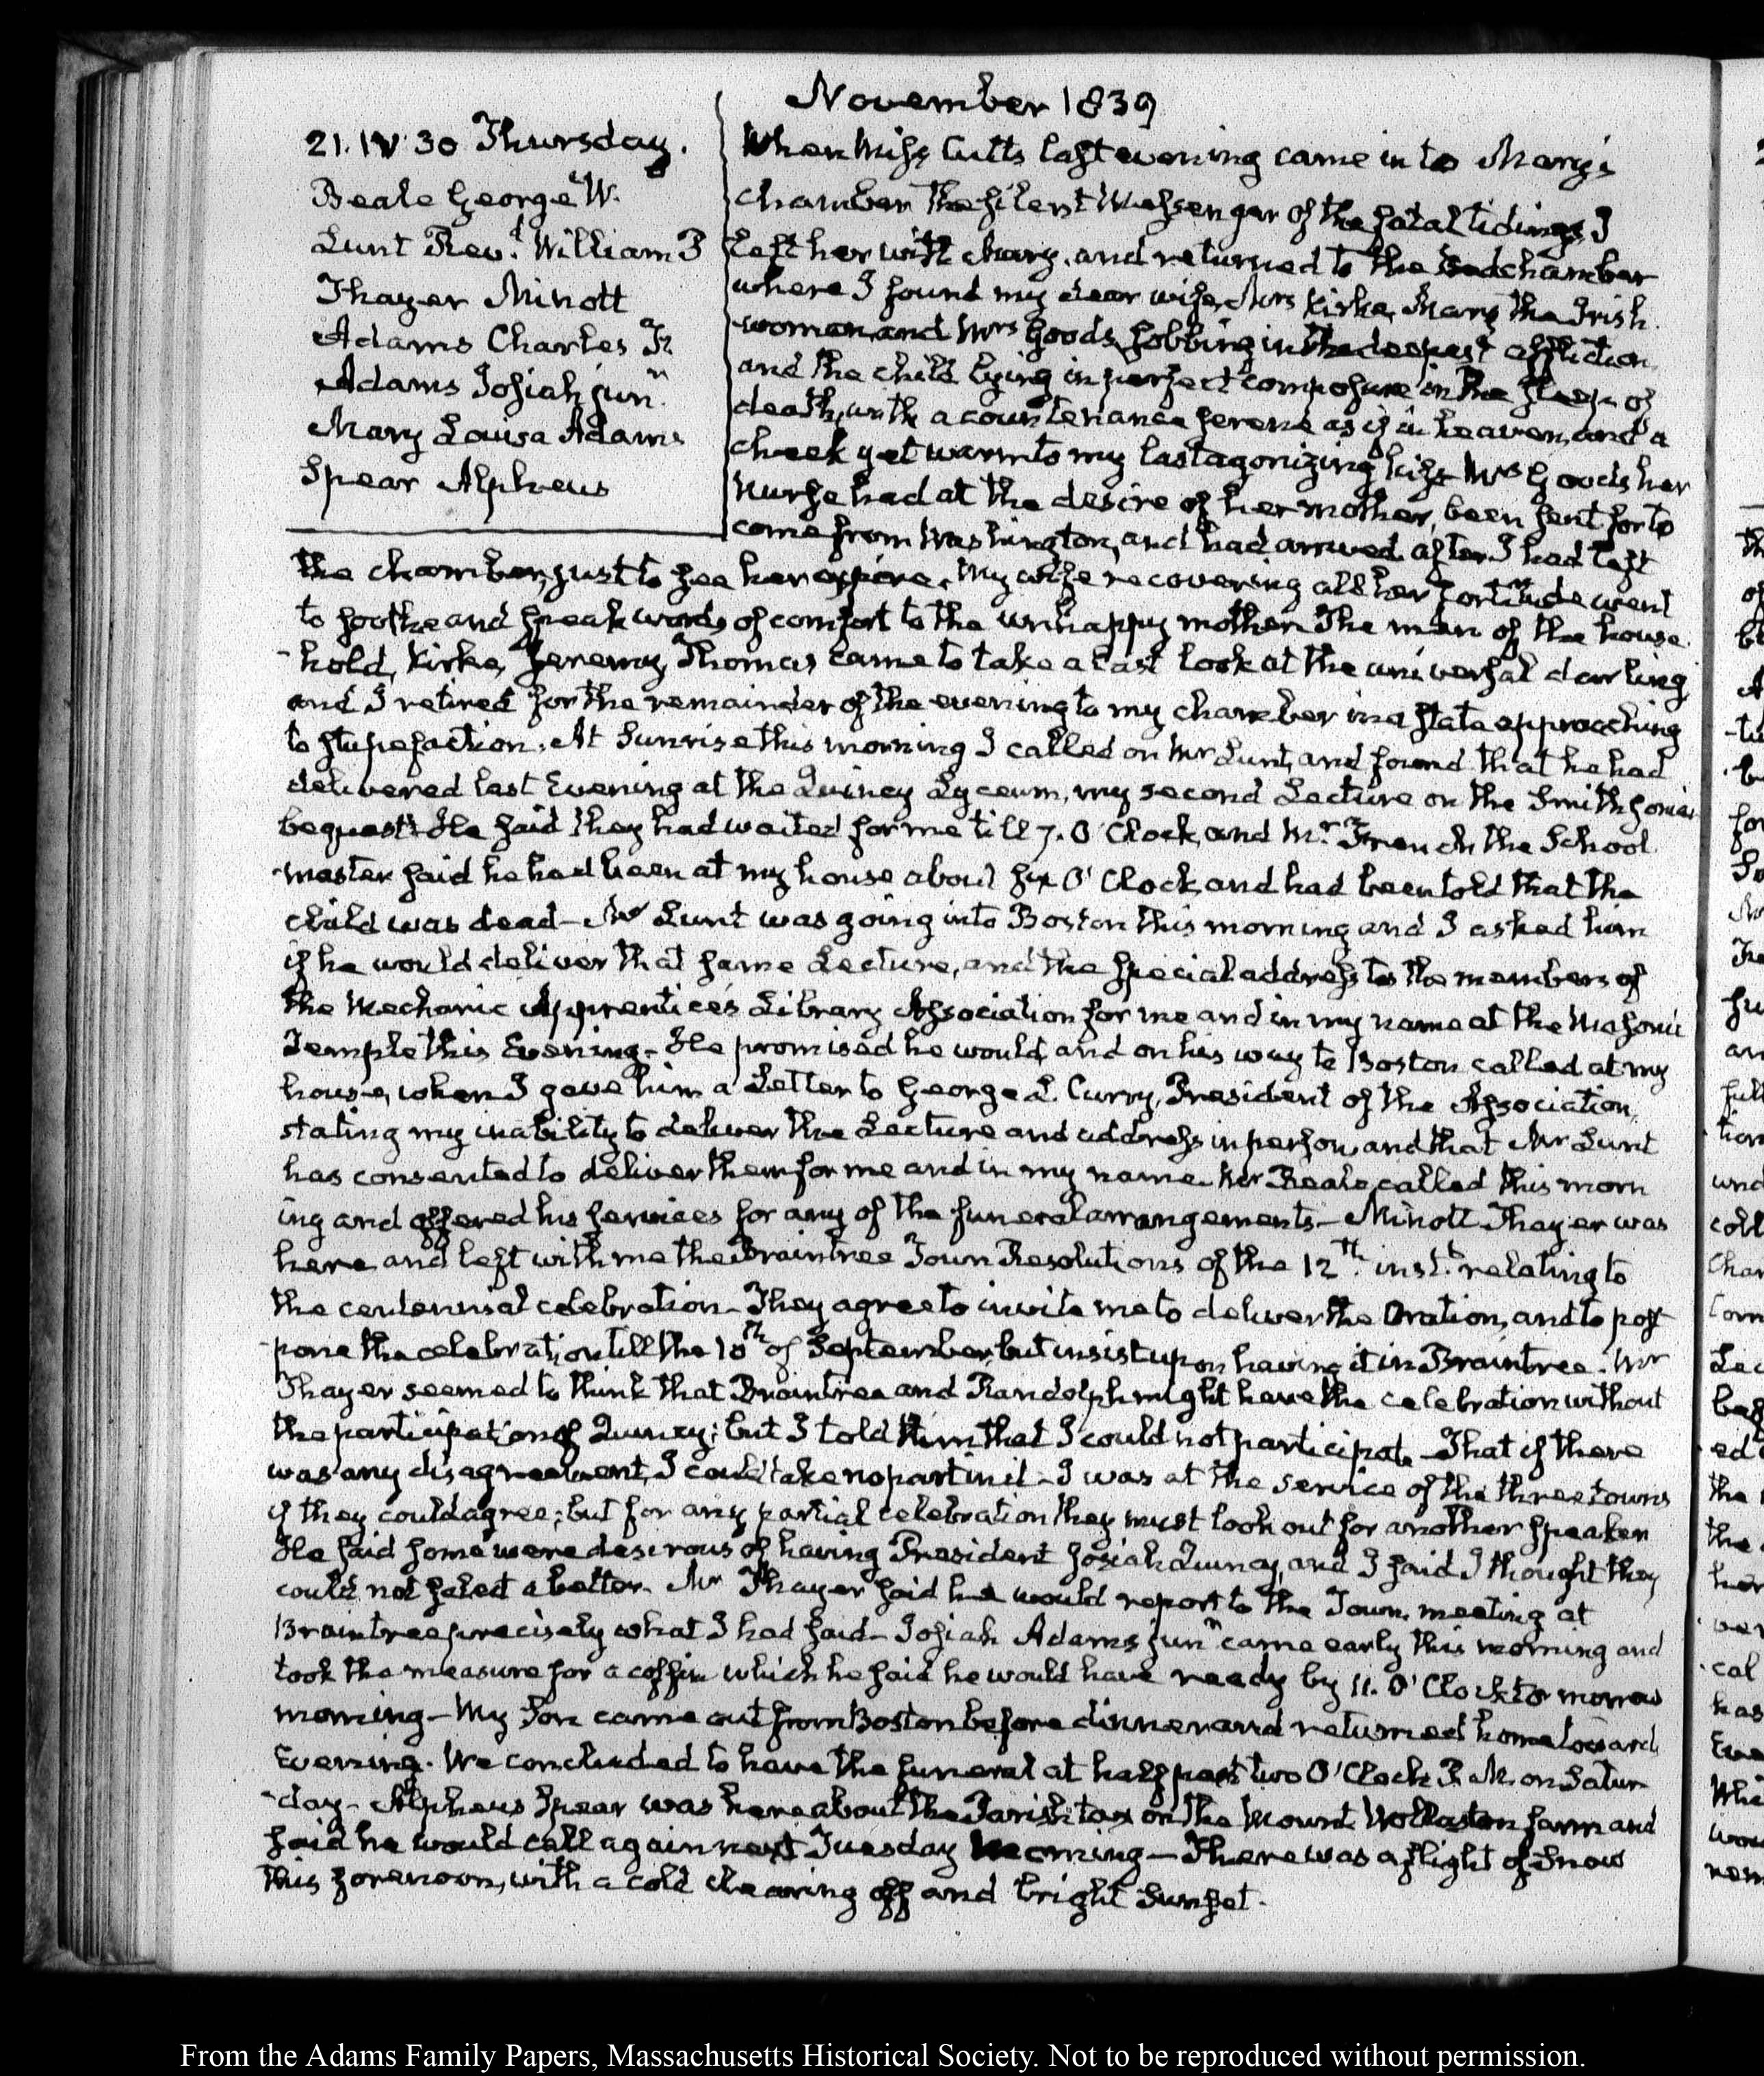 November 1839
21. IV 30 Thursday.
Beale George W.
Lunt Revd. William P
Thayer Minott
Adams Charles F.
Adams Josiah junr.
Mary Louisa Adams
Spear Alpheus
When Miss Cutts last evening came in to Mary's
chamber the silent Messenger of the fatal tidings, I
left her with Mary, and returned to the bedchamber
where I found my dear wife, Mrs Kirke, Mary the Irish
woman and Mrs Goods, sobbing in the deepest affliction,
and the child lying in perfect composure in the sleep of
death, with a countenance serene as if in heaven, and a
cheek yet warm to my last agonizing kiss Mrs Goods her
nurse had at the desire of her mother, been sent for to
come from Washington, and had arrived after I had left
the chamber, just to see her expire. My wife recovering all her fortitude went
to soothe and speak words of comfort to the unhappy mother. The men of the house
-hold, Kirke, Jeremy, Thomas came to take a last look at the universal darling
and I retired for the remainder of the evening to my chamber in a state approaching
to stupefaction. At Sunrise this morning I called on Mr Lunt, and found that he had
delivered last Evening at the Quincy Lyceum, my second Lecture on the Smithsonian
bequest. He said they had waited for me till 7. O'Clock, and Mr. French the School
-master said he had been at my house about six O'Clock, and had been told that the
child was dead - Mr Lunt was going into Boston this morning and I asked him
if he would deliver that same Lecture, and the special address to the members of
the Mechanic Apprentices Library Association for me and in my name at the Masonic
Temple this Evening - He promised he would, and on his way to Boston called at my
house, when I gave him a Letter to George L. Curry, President of the Association,
stating my inability to deliver the Lecture and address in person, and that Mr Lunt
has consented to deliver them for me and in my name. Mr Beale called this morn
ing and offered his services for any of the funeral arrangements - Minott Thayer was
here and left with me the Braintree Town Resolutions of the 12th. inst. relating to
the centennial celebration - They agree to invite me to deliver the Oration, and to post
-pone the celebration till the 10th of September, but insist upon having it in Braintree. Mr
Thayer seemed to think that Braintree and Randolph might have the celebration without
the participation of Quincy; but I told him that I could not participate - That if there
was any disagreement, I could take no part in it - I was at the service of the three towns
if they could agree; but for any partial celebration they must look out for another speaker
He said some were desirous of having President Josiah Quincy, and I said I thought they
could not select a better - Mr Thayer said he would report to the Town meeting at
Braintree precisely what I had said - Josiah Adams junr came early this morning and
took the measure for a coffin which he said he would have ready by 11. O'Clock to morrow
morning - My Son came out from Boston before dinner and returned home towards
Evening. We concluded to have the funeral at half past two O'Clock P.M. on Satur
-day - Alpheus Spear was here about the Parish tax on the Mount Wollaston farm and
said he would call again next Tuesday Morning - There was a flight of Snow
this forenoon, with a cold clearing off and bright Sunset.
From the Adams Family Papers, Massachusetts Historical Society. Not to be reproduced without permission.